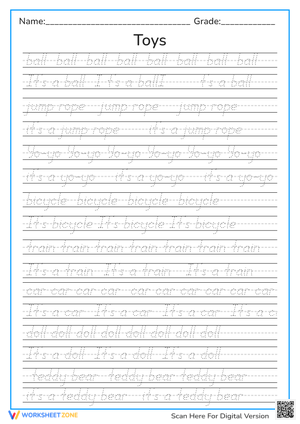 Name:________________________________ Grade:____________
Toys
ball ball ball ball ball ball ball ball
It's a ball I t's a ballI t's a ball
jump rope jump rope jump rope
it's a jump rope it's a jump rope
Yo-yo Yo-yo Yo-yo Yo-yo Yo-yo Yo-yo
it's a yo-yo it's a yo-yo it's a yo-yo
bicycle bicycle bicycle bicycle
It's bicycle It's bicycle It's bicycle
train train train train train train train
It's a train It's a train It's a train
car car car car car car car car car car
It's a car It's a car It's a car It's a c
doll doll doll doll doll doll doll doll
It's a doll It's a doll It's a doll
teddy bear teddy bear teddy bear
it's a teddy bear it's a teddy bear
WORKSHEETZONE Scan Here For Digital Version